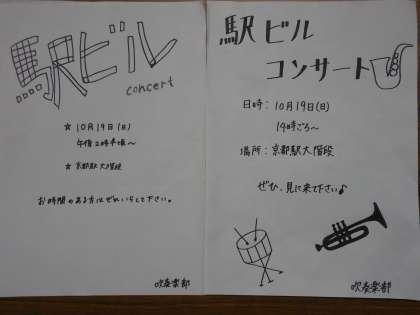 駅ビル
concert
☆ 10月19日(日)
午後2時半頃〜
☆ 京都駅大階段
お時間のある方はぜひいらして下さい。
吹奏楽部
駅ビル
コンサート
日時：10月19日(日)
14時ごろ〜
場所：京都駅大階段
ぜひ、見に来て下さい♪
吹奏楽部